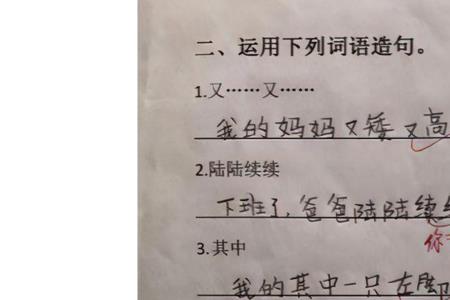 二、运用下列词语造句。
1.又……又……
我的妈妈又矮又高
2.陆陆续续
下班了,爸爸陆陆续
你
3.其中
我的其中一只左脚